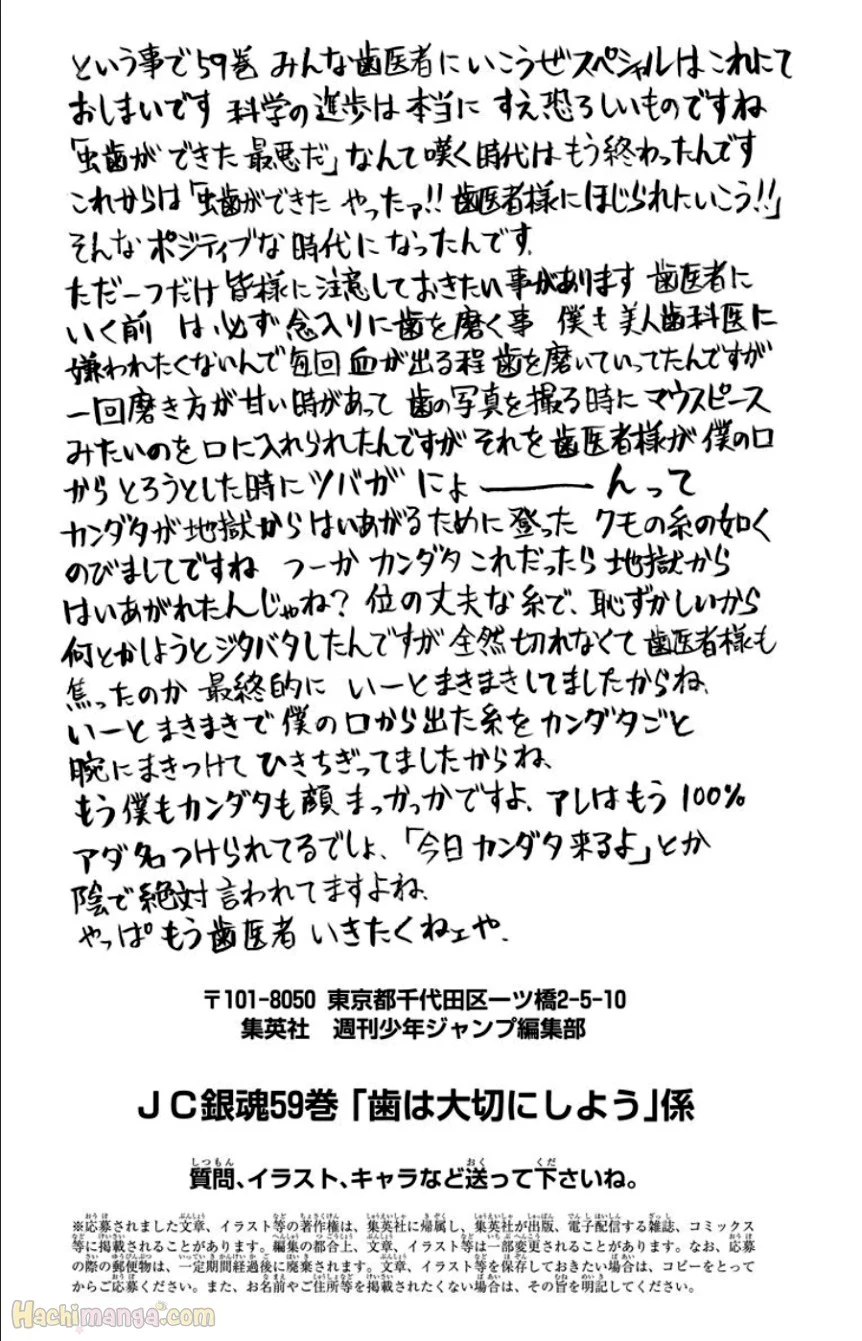 という事で59巻 みんな歯医者にいこうぜスペシャルはこれにて
おしまいです 科学の進歩は本当に すえ恐ろしいものですね
「虫歯ができた 最悪だ」なんて嘆く時代はもう終わったんです
これからは「虫歯ができた やったァ!! 歯医者様にほじられにいこう!!」
そんな ポジティブな 時代に なったんです、
ただ一つだけ 皆様に注意しておきたい事があります 歯医者に
いく前 は 必ず 念入りに歯を磨く事 僕も 美人歯科医に
嫌われたくないんで毎回 血が出る程 歯を磨いていってたんですが
一回磨き方が甘い時があって 歯の写真を撮る時に マウスピース
みたいのを口に入れられたんですが それを歯医者様が僕の口
からとろうとした時にツバが にょ――――んって
カンダタが地獄からはいあがるために登った クモの糸の如く
のびましてですね つーか カンダタ これだったら 地獄から
はいあがれたんじゃね? 位の丈夫な糸で、恥ずかしいから
何とかしようとジタバタしたんですが 全然切れなくて 歯医者様も
焦ったのか 最終的に いーとまきまきしてましたからね、
いーとまきまきで 僕の口から出た糸を カンダタごと
腕にまきつけて ひきちぎってましたからね、
もう 僕もカンダタも顔まっかっかですよ、アレはもう 100%
アダ名つけられてるでしょ、「今日カンダタ来るよ」とか
陰で絶対言われてますよね、
やっぱ もう 歯医者 いきたくねェや、
〒101-8050 東京都千代田区一ツ橋2-5-10
集英社 週刊少年ジャンプ編集部
JC銀魂59巻「歯は大切にしよう」係
質問、イラスト、キャラなど送って下さいね。
※応募されました文章、イラスト等の著作権は、集英社に帰属し、集英社が出版、電子配信する雑誌、コミックス
等に掲載されることがあります。編集の都合上、文章、イラスト等は一部変更されることがあります。なお、応募
の際の郵便物は、一定期間経過後に廃棄されます。文章、イラスト等を保存しておきたい場合は、コピーをとって
からご応募ください。また、お名前やご住所等を掲載されたくない場合は、その旨を明記してください。
Hachimanga.com